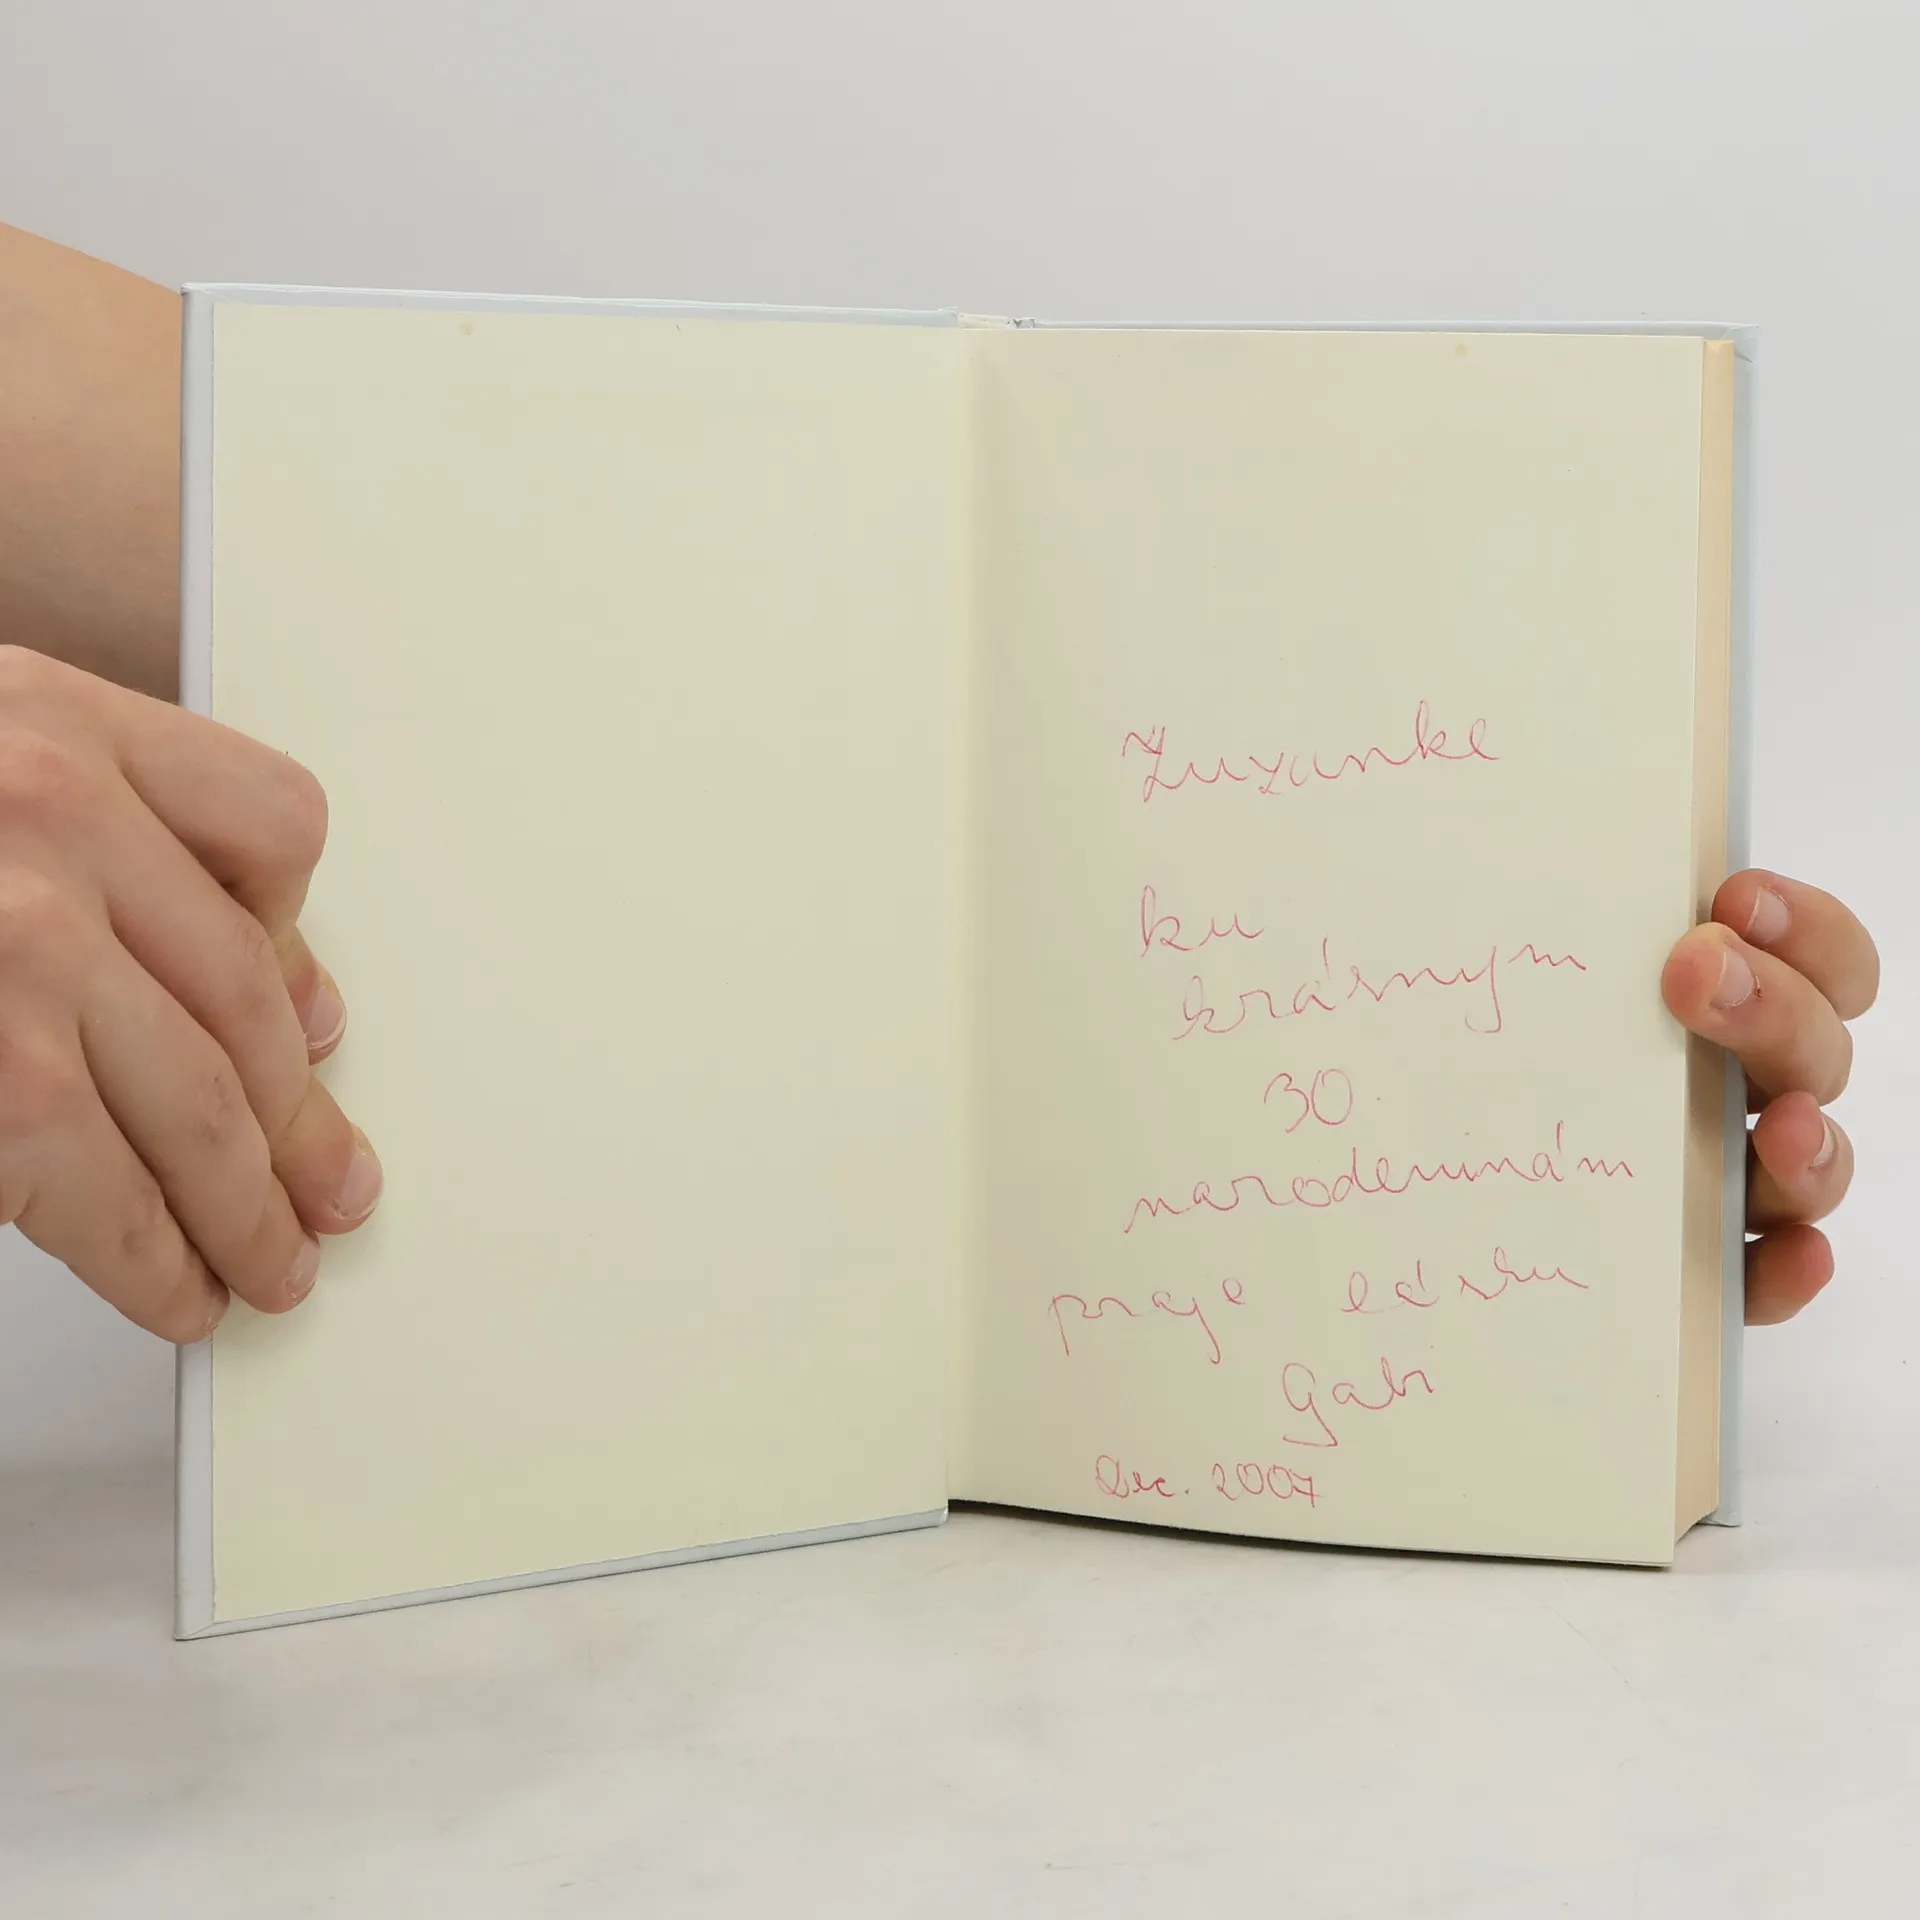 Zuzanke
ku
krásnym
30.
narodeninám
praje
Gabi
Dec. 2007